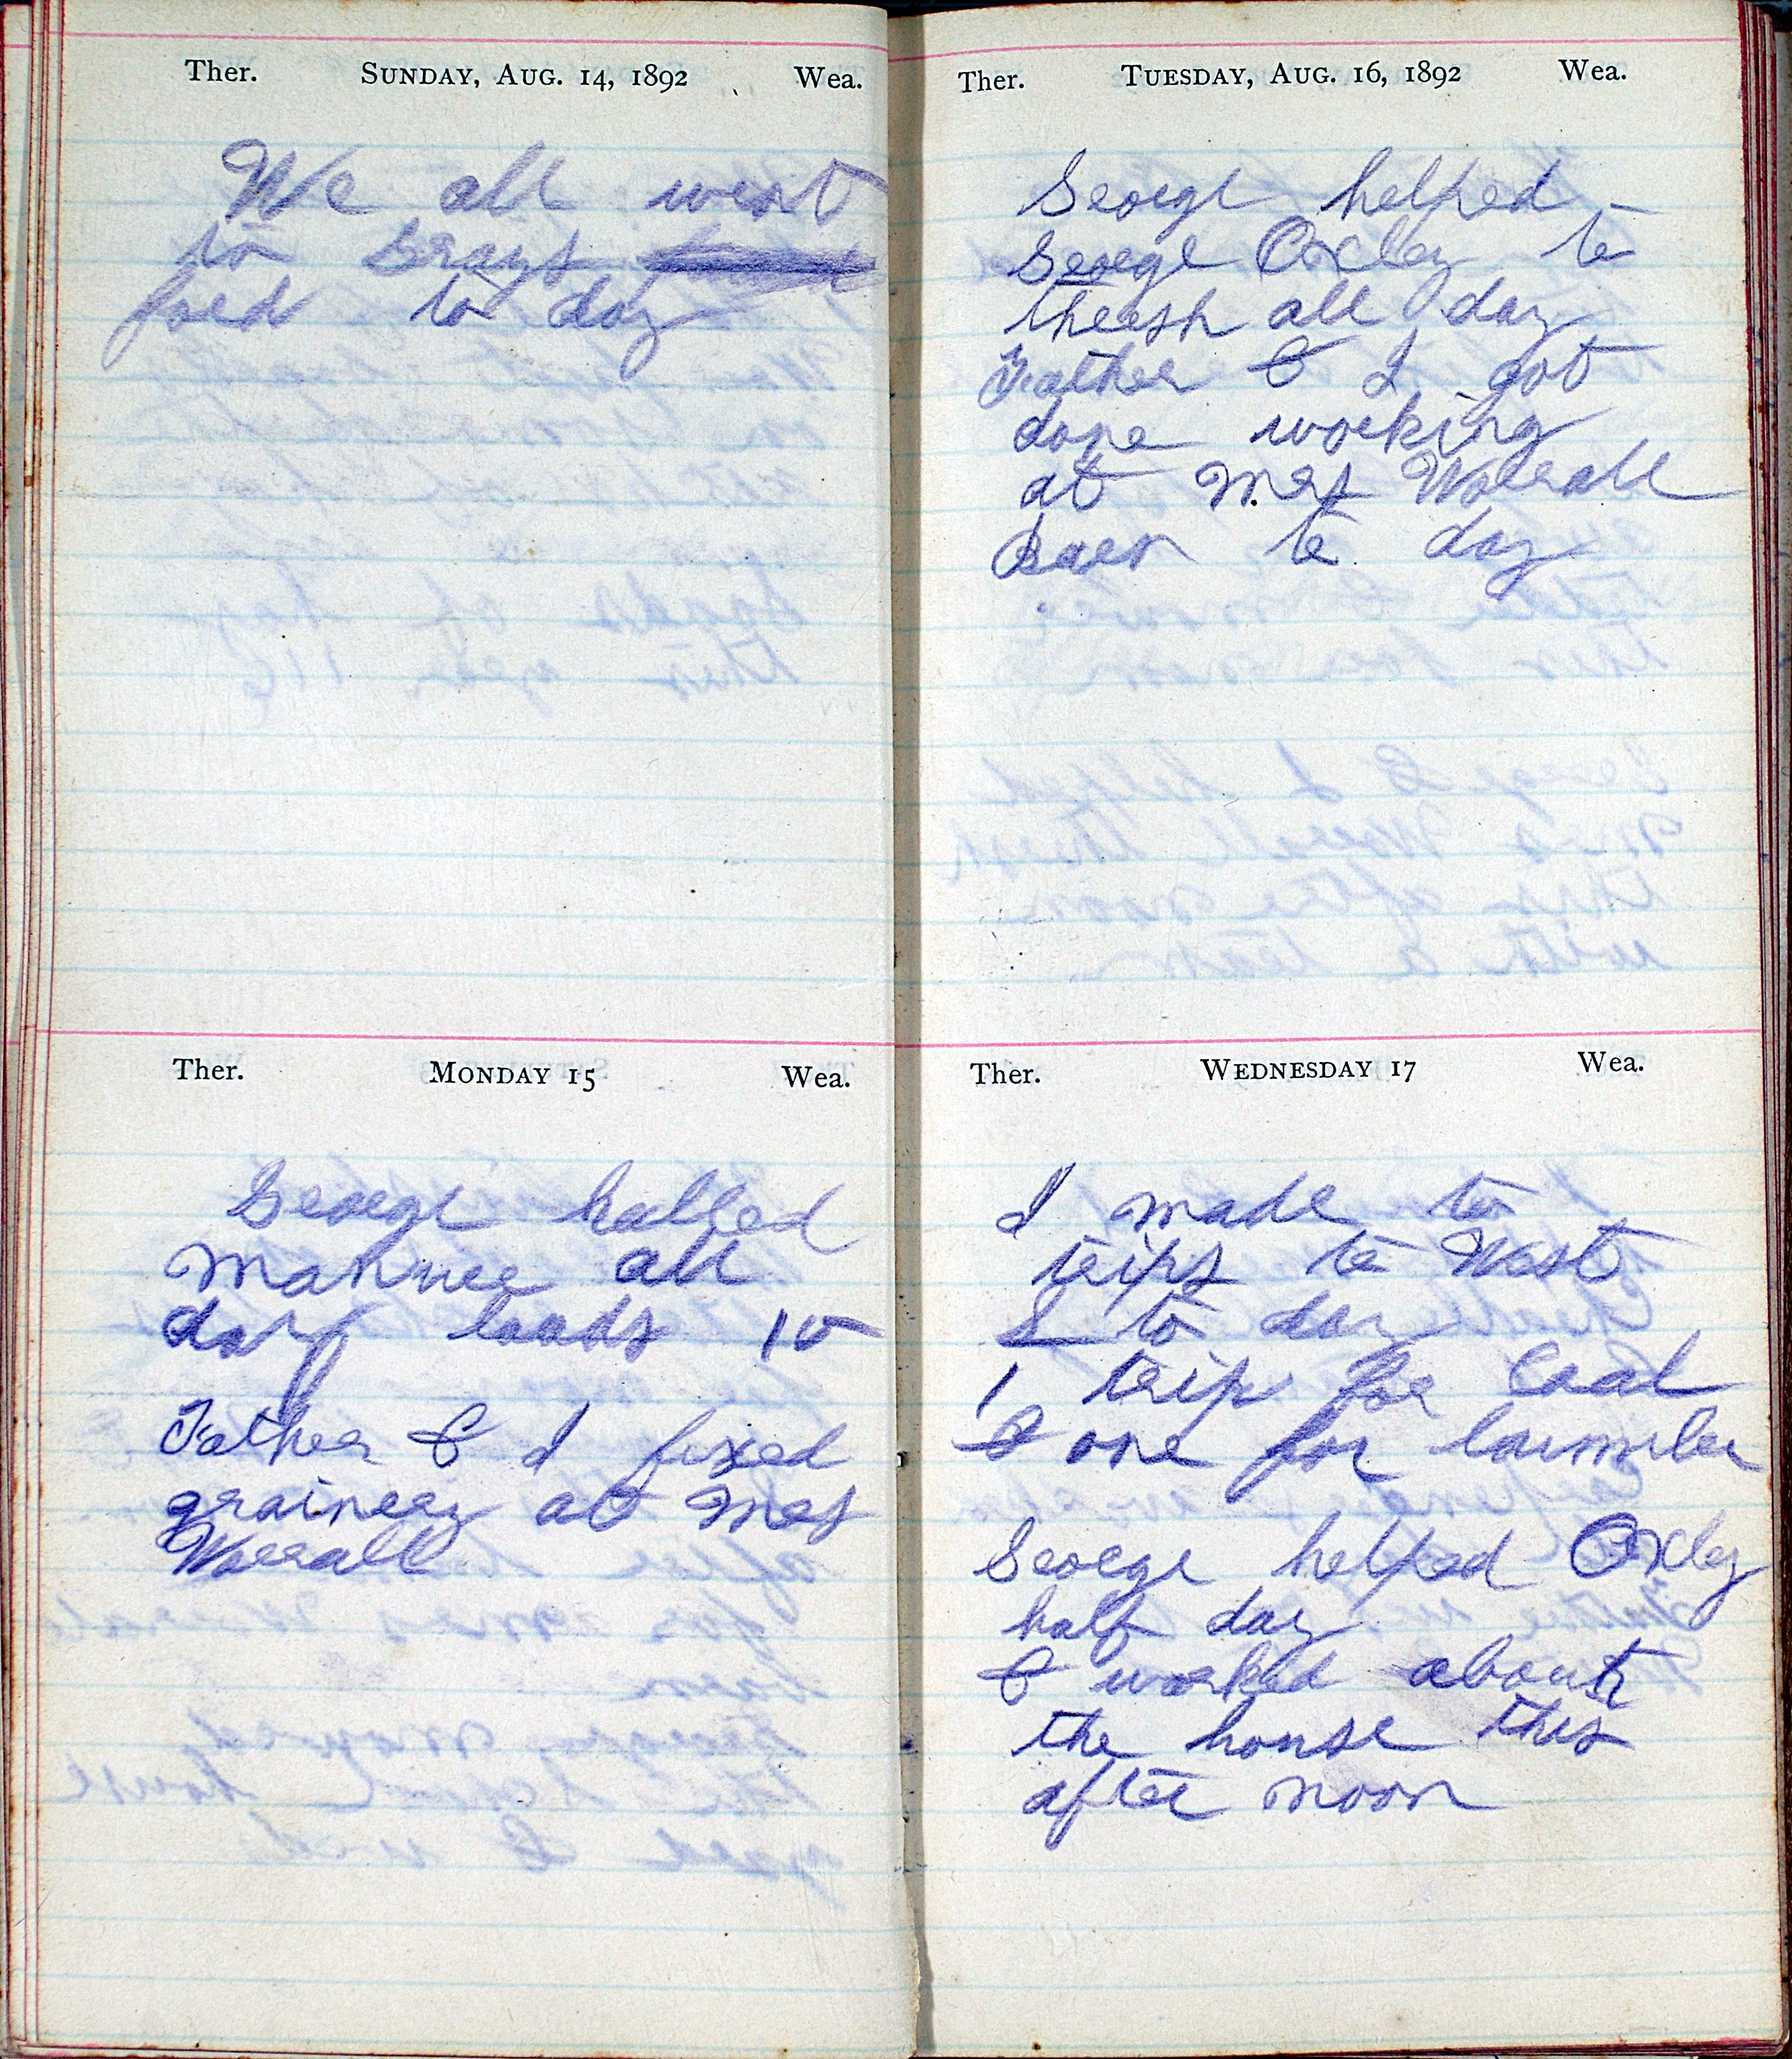 Ther. SUNDAY, AUG. 14, 1892 Wea.
We all went
to Grays
ford to day
Ther. MONDAY 15 Wea.
George halled
Manure all
day loads 10
Father & I fixed
grainery at Mrs
Worrall
Ther. TUESDAY, AUG. 16, 1892 Wea.
George helped
George Oxley to
thersh all day
Father & I got
done working
at Mrs Worrall
Barn to day
Ther. WEDNESDAY 17 Wea.
I made to
trips to West
L to day
1 trip for Coal
& one for lumber
George helped Oxley
half day
& worked about
the house this
after noon